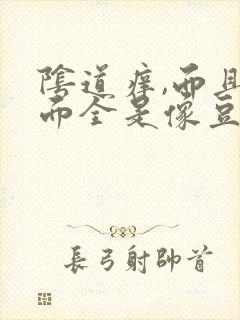 陰道痒,而且
而全是像豆
長弓射帥首